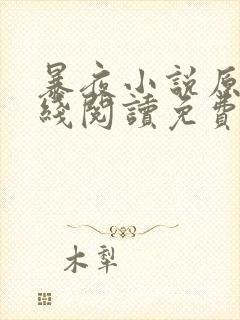 暴夜小說原
綫閱讀免費
木犁